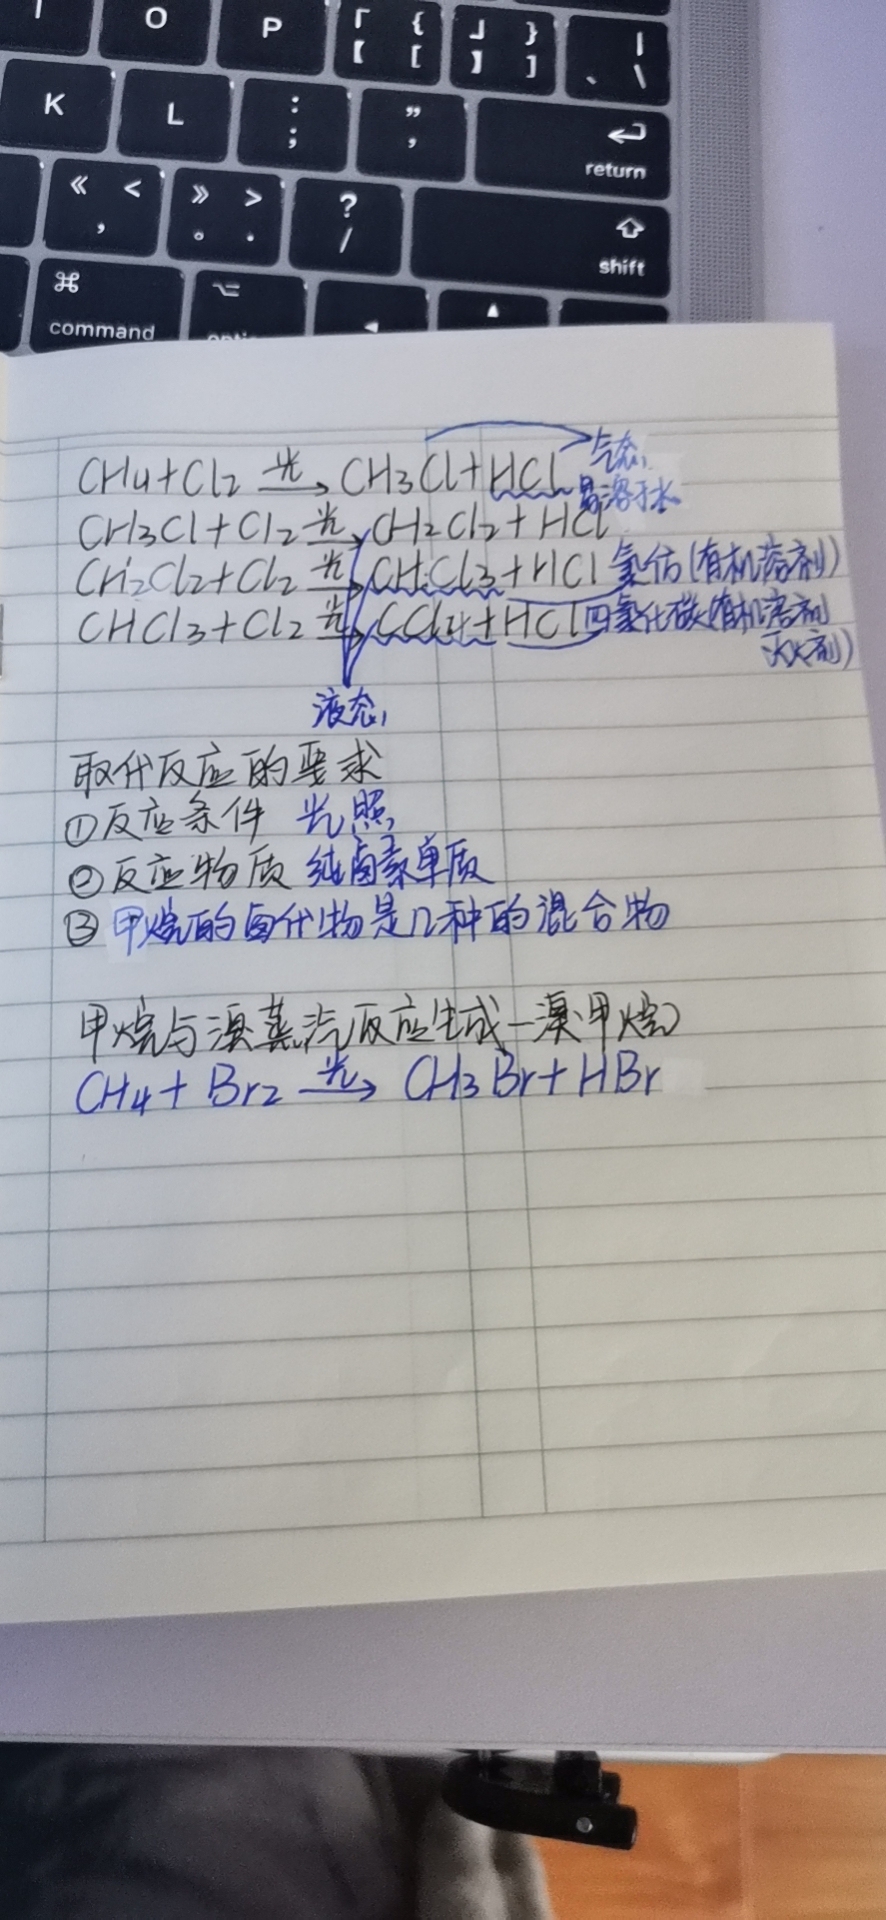 O P 「 { 【 [ 」 } 】 ] | 、 \
K L : ; " , return
《 < , 》 > 。 . ? / shift
⌘ command ⌥
CH4+Cl2 光→ CH3Cl+HCl 气态,
易溶于水
CH3Cl+Cl2 光→ CH2Cl2+HCl
CH2Cl2+Cl2 光→ CHCl3+HCl 氯仿(有机溶剂)
CHCl3+Cl2 光→ CCl4+HCl 四氯化碳(有机溶剂
灭火剂)
液态,
取代反应的要求
①反应条件 光照,
②反应物质 纯卤素单质
③甲烷的卤代物是几种的混合物
甲烷与溴蒸汽反应生成一溴甲烷
CH4+Br2 光→ CH3Br+HBr